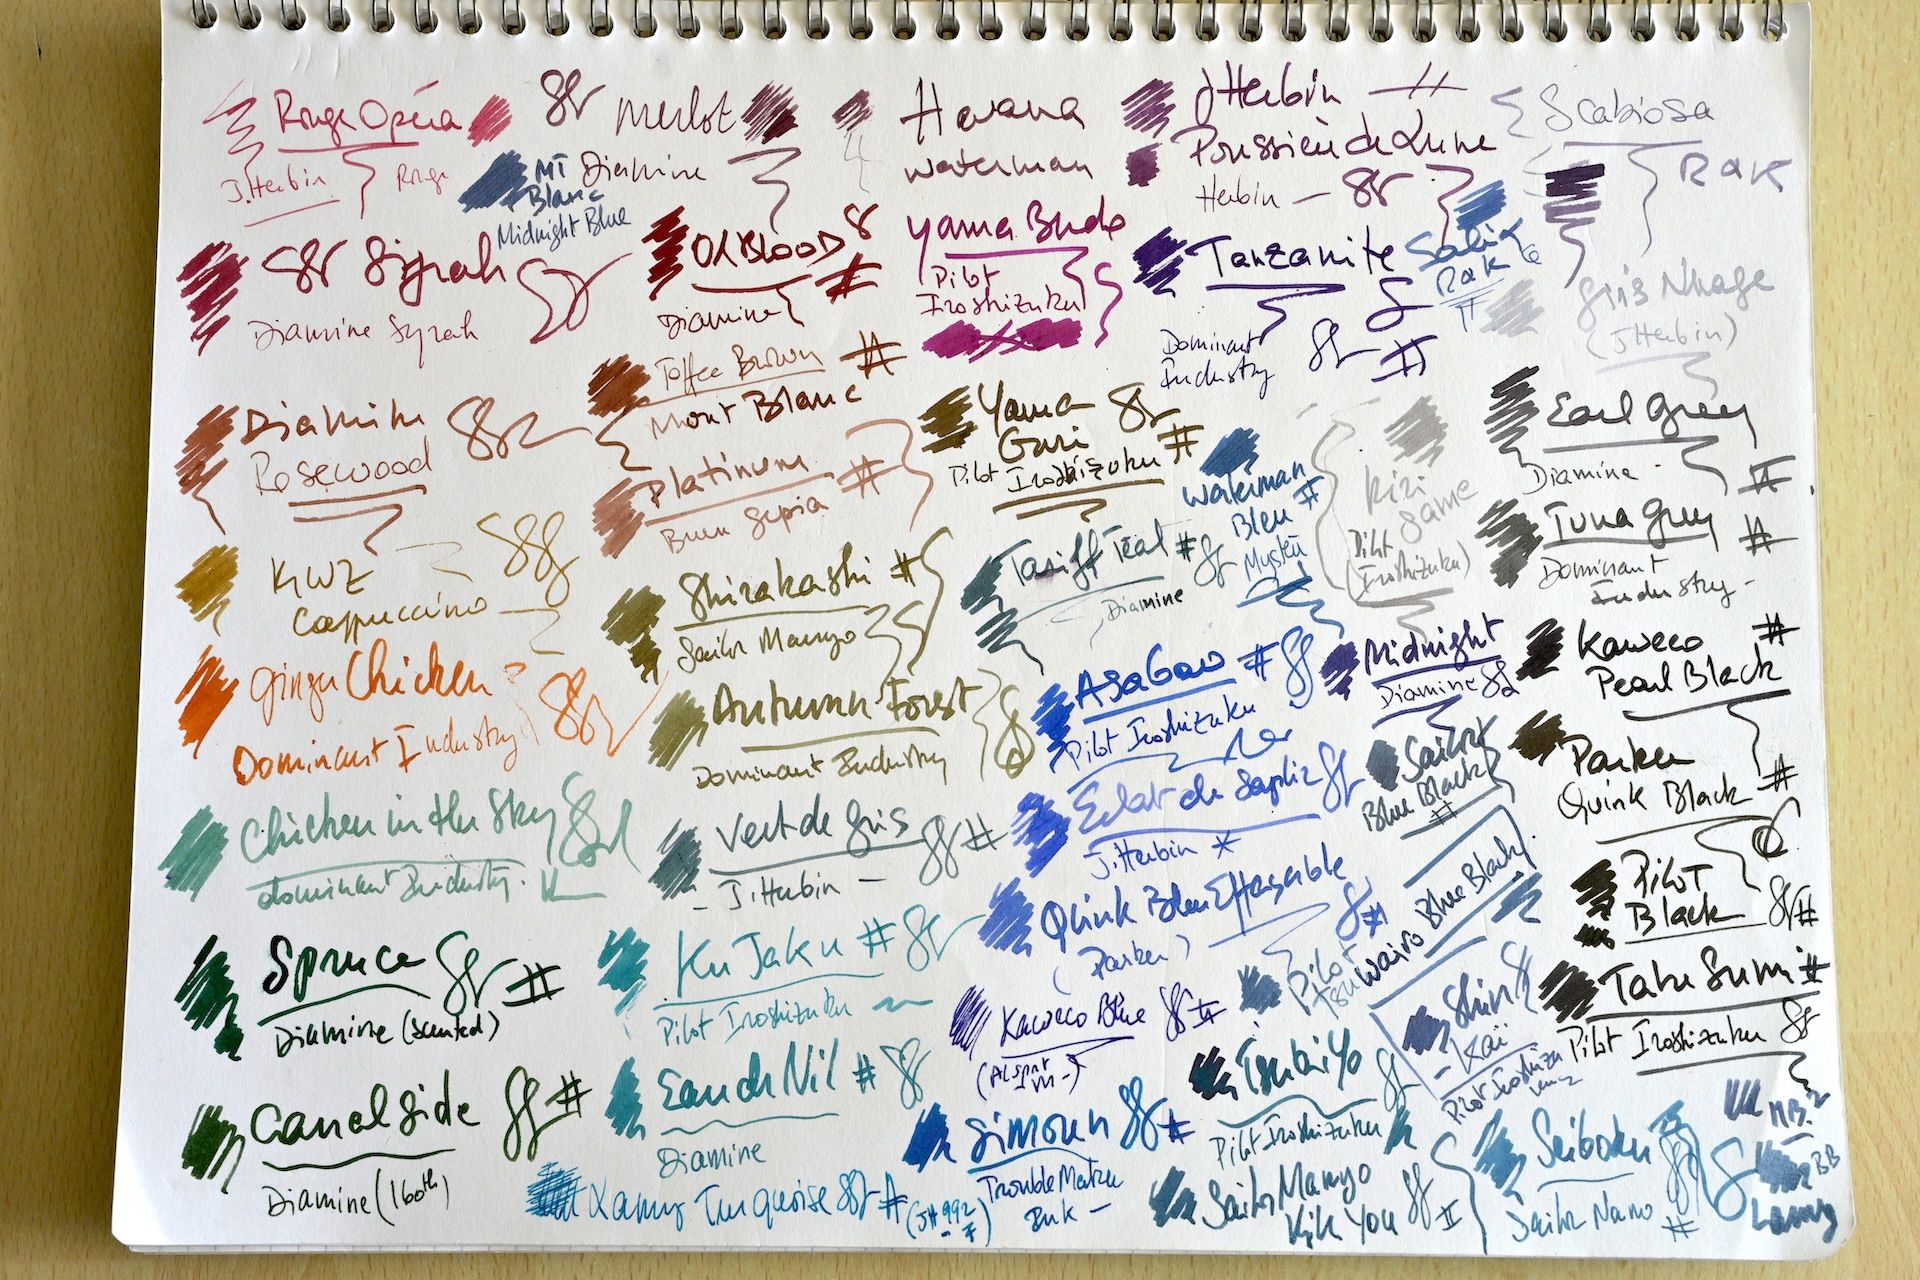 Rouge Opéra
J. Herbin
Rouge
Merlot
Diamine
MT
Blanc
Midnight Blue
Havana
Waterman
J Herbin
Poussière de Lune
Herbin
Scabiosa
RAK
Syrah
Diamine Syrah
OXBLOOD
Diamine
Yama Budo
Pilot
Iroshizuku
Tanzanite
Dominant
Industry
Salix
Rak
Gris Nuage
(J Herbin)
Toffee Brown #
Mont Blanc
Diamine
Rosewood
Platinum #
Brun Sepia
Yama
Guri #
Pilot Iroshizuku
Waterman
Bleu
Mystère
Kiri
game
Pilot
(Iroshizuku)
Earl Grey
Diamine
Tuna Grey #
Dominant
Industry
KWZ
Cappuccino
Shirakashi #
Sailor Manyo
Tariff Teal #
Diamine
Ginger Chicken
Dominant Industry
Autumn Forest
Dominant Industry
Asa Gao #
Pilot Iroshizuku
Midnight
Diamine
Kaweco #
Pearl Black
Eclat de Saphir
J. Herbin *
Sailor
Blue Black
#
Parker
Quink Black #
Chicken in the Sky
Dominant Industry.
Vert de Gris #
- J. Herbin -
Quink Bleu Effaçable
(Parker) #
Pilot
Tsuwairo Blue Black
Pilot
Black #
Spruce #
Diamine (scented)
Ku Jaku #
Pilot Iroshizuku
Kaweco Blue #
Shin
- Kai
Pilot Iroshizu
Take Sumi #
Pilot Iroshizuku
Canal Side #
Diamine (160th)
Eau de Nil #
Diamine
Simoun #
TroubleMaker
Ink -
Tsuki Yo
Pilot Iroshizuku
Lamy Turquoise #
Sailor Manyo
Kik You
Seiboku
Sailor Nano #
BB
Lamy